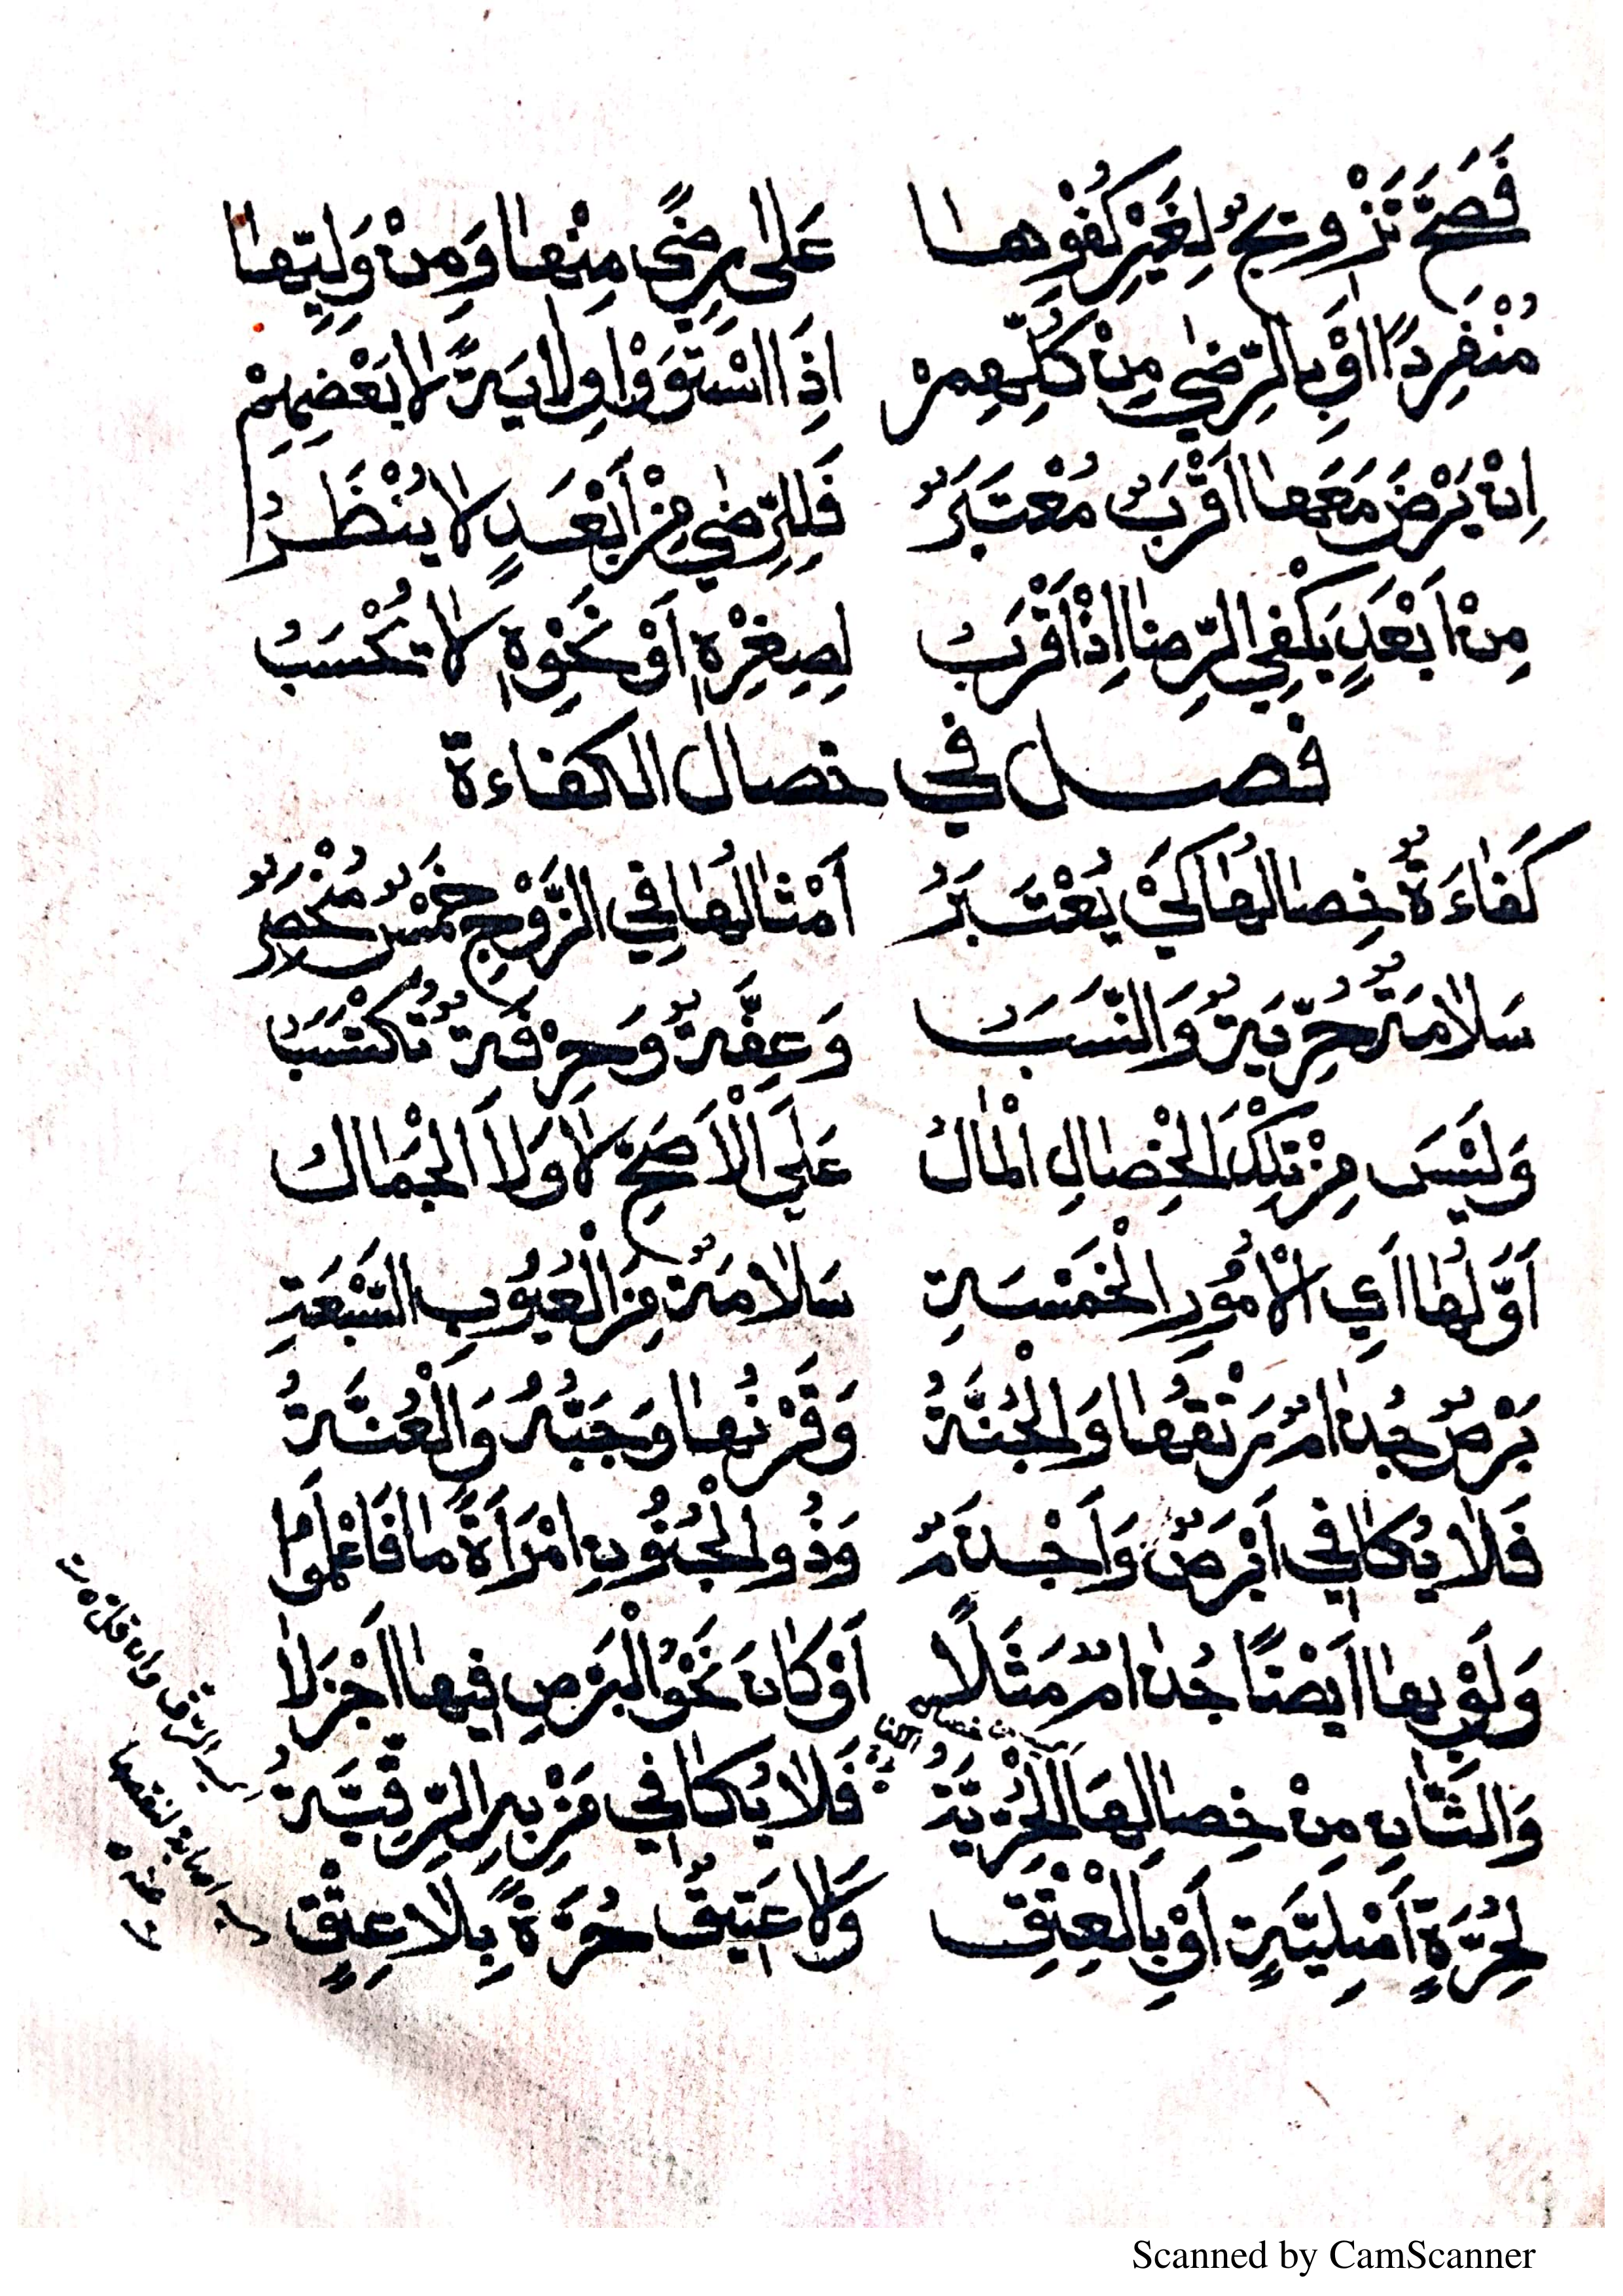 فَصَحَّ تَزْوِيجٌ لِغَيْرِ كُفْوِهَا عَلَى رِضًى مِنْهَا وَمِنْ وَلِيِّهَا
مُنْفَرِدًا اَوْ بِالرِّضٰى مِنْ كُلِّهِمْ اِذَا اسْتَوَوْا وِلَايَةً لَا بَعْضِهِمْ
اِنْ يَرْضَ مَعَهَا اَقْرَبٌ مُعْتَبَرٌ فَلِلرِّضٰى مِنْ اَبْعَدٍ لَا يُنْظَرُ
مِنْ اَبْعَدٍ يَكْفِي الرِّضَا اِذْ اَقْرَبُ لِصِغْرِهِ اَوْ نَحْوِهِ لَا تُحْسَبُ
فصل في خصال الكفاءة
كَفَاءَةٌ خِصَالُهَا كَيْ يُعْتَبَرُ اَمْثَالُهَا فِي الزَّوْجِ خَمْسٌ مُنْحَصِرٌ
سَلَامَةٌ حُرِّيَةٌ وَالنَّسَبُ وَعِفَّةٌ وَحِرْفَةٌ تُكْتَسَبُ
وَلَيْسَ مِنْ تِلْكَ الْخِصَالِ الْمَالُ عَلَى الْاَصَحِّ لَا وَلَا الْجَمَالُ
اَوَّلُهَا اَيِ الْاُمُورِ الْخَمْسَةِ سَلَامَةٌ مِنَ الْعُيُوبِ السَّبْعَةِ
بَرْصٌ جُذَامٌ رَتْقُهَا وَالْجُنَّةُ وَقَرْنُهَا وَجَبُّهُ وَالْعُنَّةُ
فَلَا يُكَافِي اَبْرَصٌ وَاَجْذَمٌ وَذُو الْجُنُونِ امْرَأَةً مَا فَاعْلَمُوا
وَلَوْ بِهَا اَيْضًا جُذَامٌ مَثَلًا اَوْ كَانَ نَحْوُ الْبَرْصِ فِيهَا اَجْزَلَا
وَالثَّانِ مِنْ خِصَالِهَا الْحُرِّيَّةُ فَلَا يُكَافِي مَنْ بِهِ الرِّقِّيَّةُ
لِحُرَّةٍ اَصْلِيَّةٍ اَوْ بِالْعِتْقِ وَلَا عَتِيقٌ حُرَّةً بِلَا عِتْقٍ
اي الرق وان قل
Scanned by CamScanner